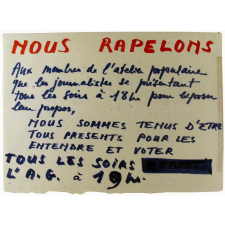 NOUS RAPELONS
Aux membres de l'atelier populaire
que les journalistes se présentant
tous les soirs à 18h pour déposer
leur propos,
NOUS SOMMES TENUS D'ETRE
TOUS PRESENTS POUR LES
ENTENDRE ET VOTER
TOUS LES SOIRS
L'A.G. à 19h.